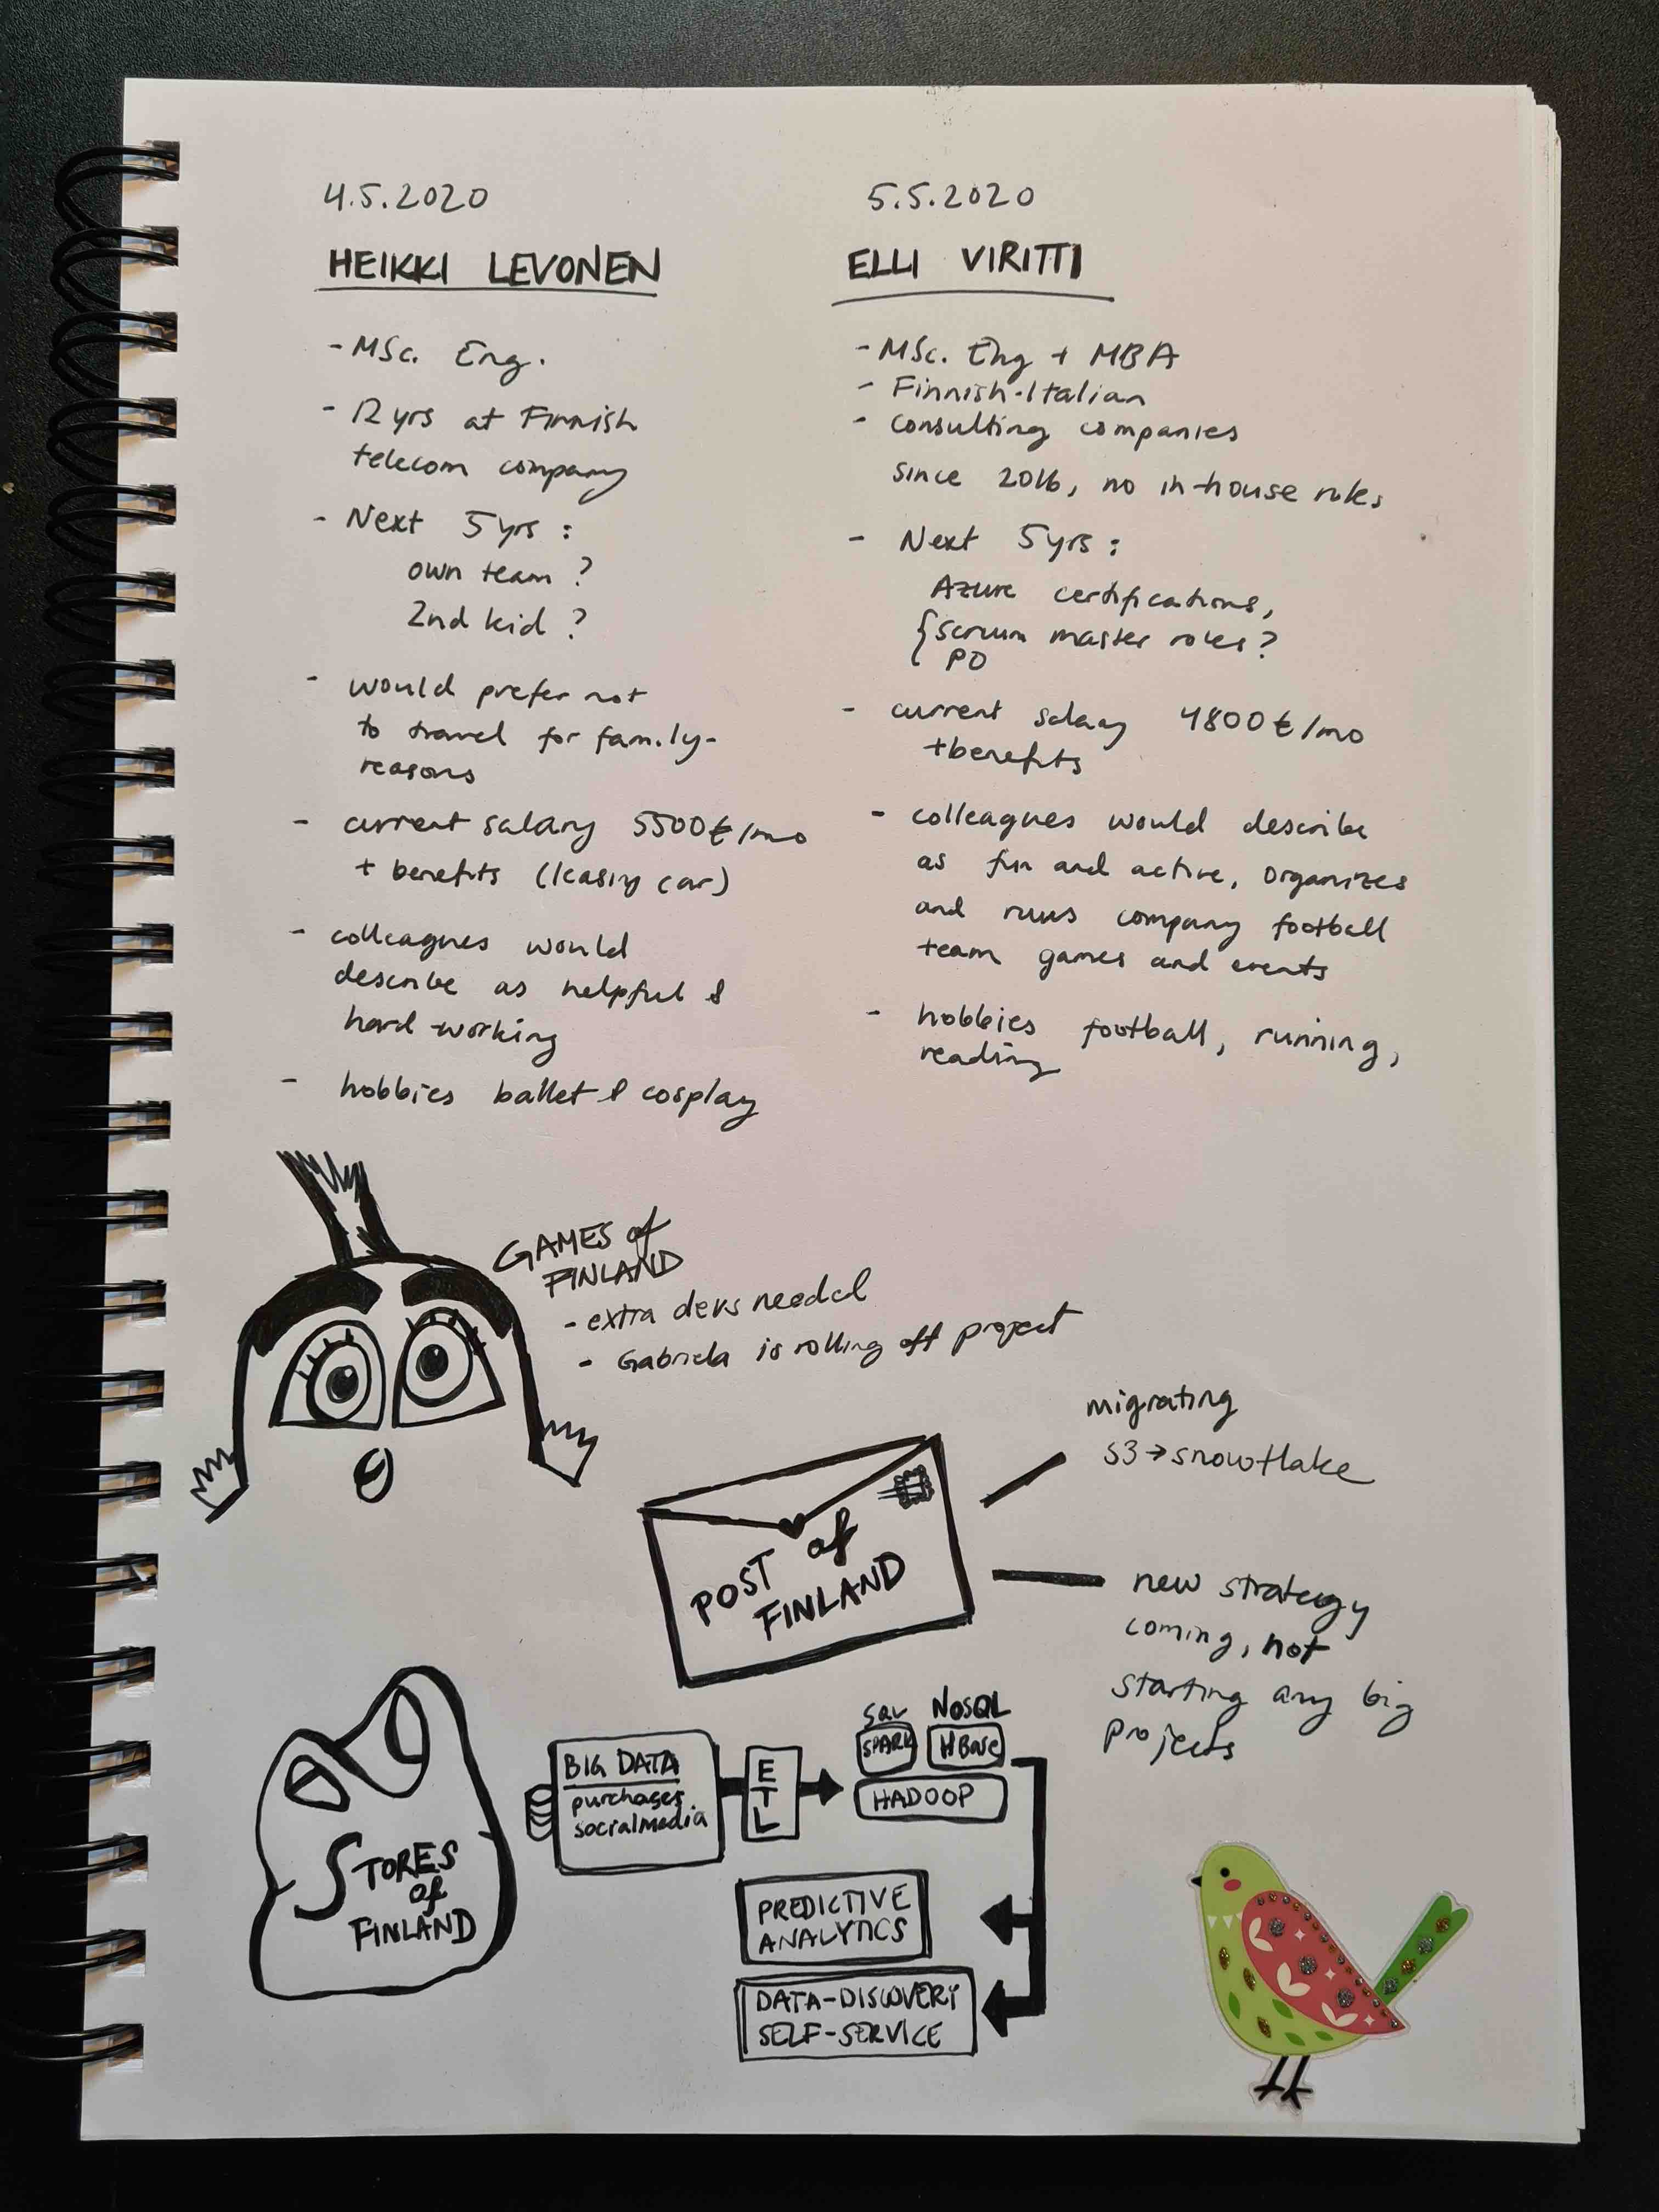 4.5.2020
HEIKKI LEVONEN
- MSc. Eng.
- 12 yrs at Finnish
telecom company
- Next 5 yrs :
own team ?
2nd kid ?
- would prefer not
to travel for family-
reasons
- current salary 5500€/mo
+ benefits (leasing car)
- colleagues would
describe as helpful &
hard-working
- hobbies ballet & cosplay
5.5.2020
ELLI VIRITTI
- MSc. Eng + MBA
- Finnish-Italian
- consulting companies
since 2016, no in-house roles
- Next 5 yrs :
Azure certifications,
{scrum master roles?
PO
- current salary 4800€/mo
+benefits
- colleagues would describe
as fun and active, organizes
and runs company football
team games and events
- hobbies football, running,
reading
GAMES of
FINLAND
- extra devs needed
- Gabriela is rolling off project
migrating
S3→snowflake
POST of
FINLAND
new strategy
coming, not
starting any big
projects
STORES
of
FINLAND
BIG DATA
purchases
socialmedia
ETL
SQL NoSQL
SPARK HBase
HADOOP
PREDICTIVE
ANALYTICS
DATA-DISCOVERY
SELF-SERVICE